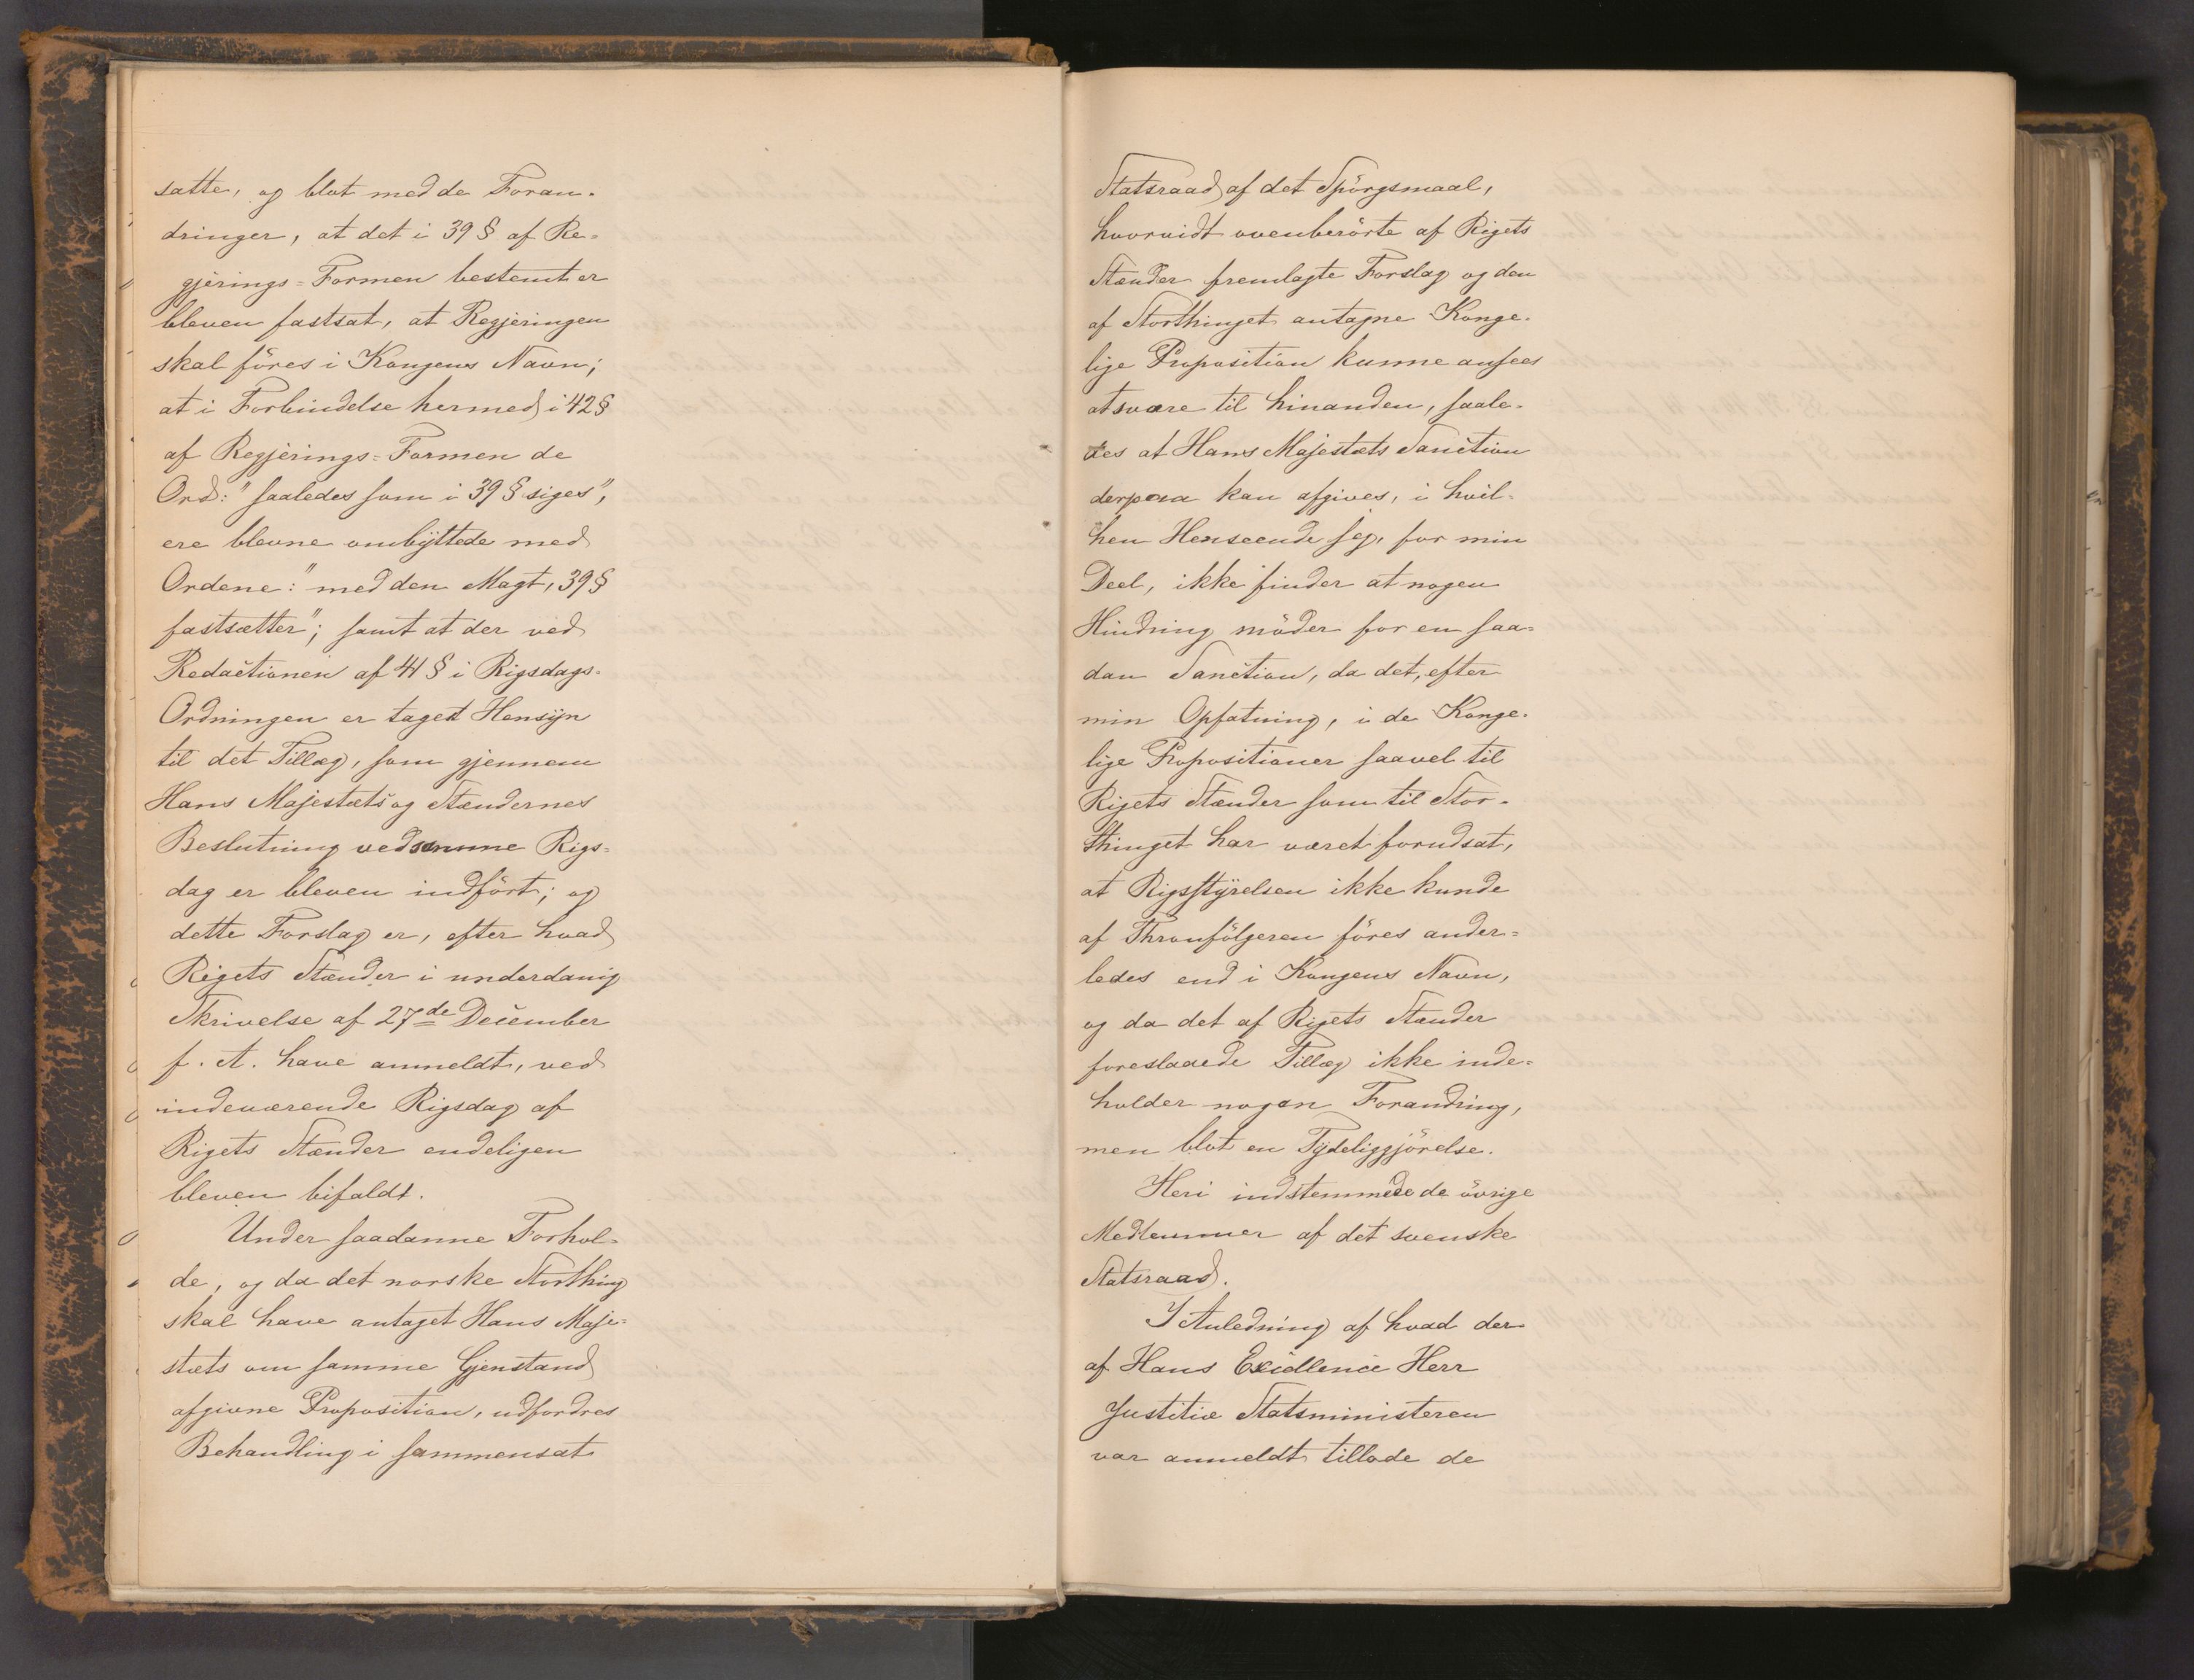 satte, og blot med de Foran-
dringer, at det i 39 § af Re-
gjerings-Formen bestemt er
bleven fastsat, at Regjeringen
skal föres i Kongens Navn;
at i Forbindelse hermed i 42 §
af Regjerings-Formen de
Ord: "saaledes som i 39 § siges",
ere blevne ombyttede med
Ordene: "med den Magt, 39 §
fastsætter"; samt at der ved
Redactionen af 41 § i Rigsdags-
Ordningen er taget Hensyn
til det Tillæg, som gjennem
Hans Majestæts og Stændernes
Beslutning ved samme Rigs-
dag er bleven indfört; og
dette Forslag er, efter hvad
Rigets Stænder i underdanig
Skrivelse af 27de December
f. A. have anmeldt, ved
indeværende Rigsdag af
Rigets Stænder endeligen
bleven bifaldt.
Under saadanne Forhol-
de, og da det norske Storthing
skal have antaget Hans Maje-
stæts om samme Gjenstand
afgivne Proposition, udfordres
Behandling i sammensat
Statsraad af det Spörgsmaal,
hvorvidt ovenberörte af Rigets
Stænder fremlagte Forslag og den
af Storthinget antagne Konge-
lige Proposition kunne ansees
at svare til hinanden, saale-
des at Hans Majestæts Sanction
derpaa kan afgives, i hvil-
ken Henseende jeg, for min
Deel, ikke finder at nogen
Hindring möder for en saa-
dan Sanction, da det, efter
min Opfatning, i de Konge-
lige Propositioner saavel til
Rigets Stænder som til Stor-
thinget har været forudsat,
at Rigsstyrelsen ikke kunde
af Thronfölgeren föres ander-
ledes end i Kongens Navn,
og da det af Rigets Stænder
foreslaaede Tillæg ikke inde-
holder nogen Forandring,
men blot en Tydeliggjörelse.
Heri indstemmede de övrige
Medlemmer af det svenske
Statsraad.
I Anledning af hvad der
af Hans Excellence Herr
Justitiæ Statsministeren
var anmeldt tillode de